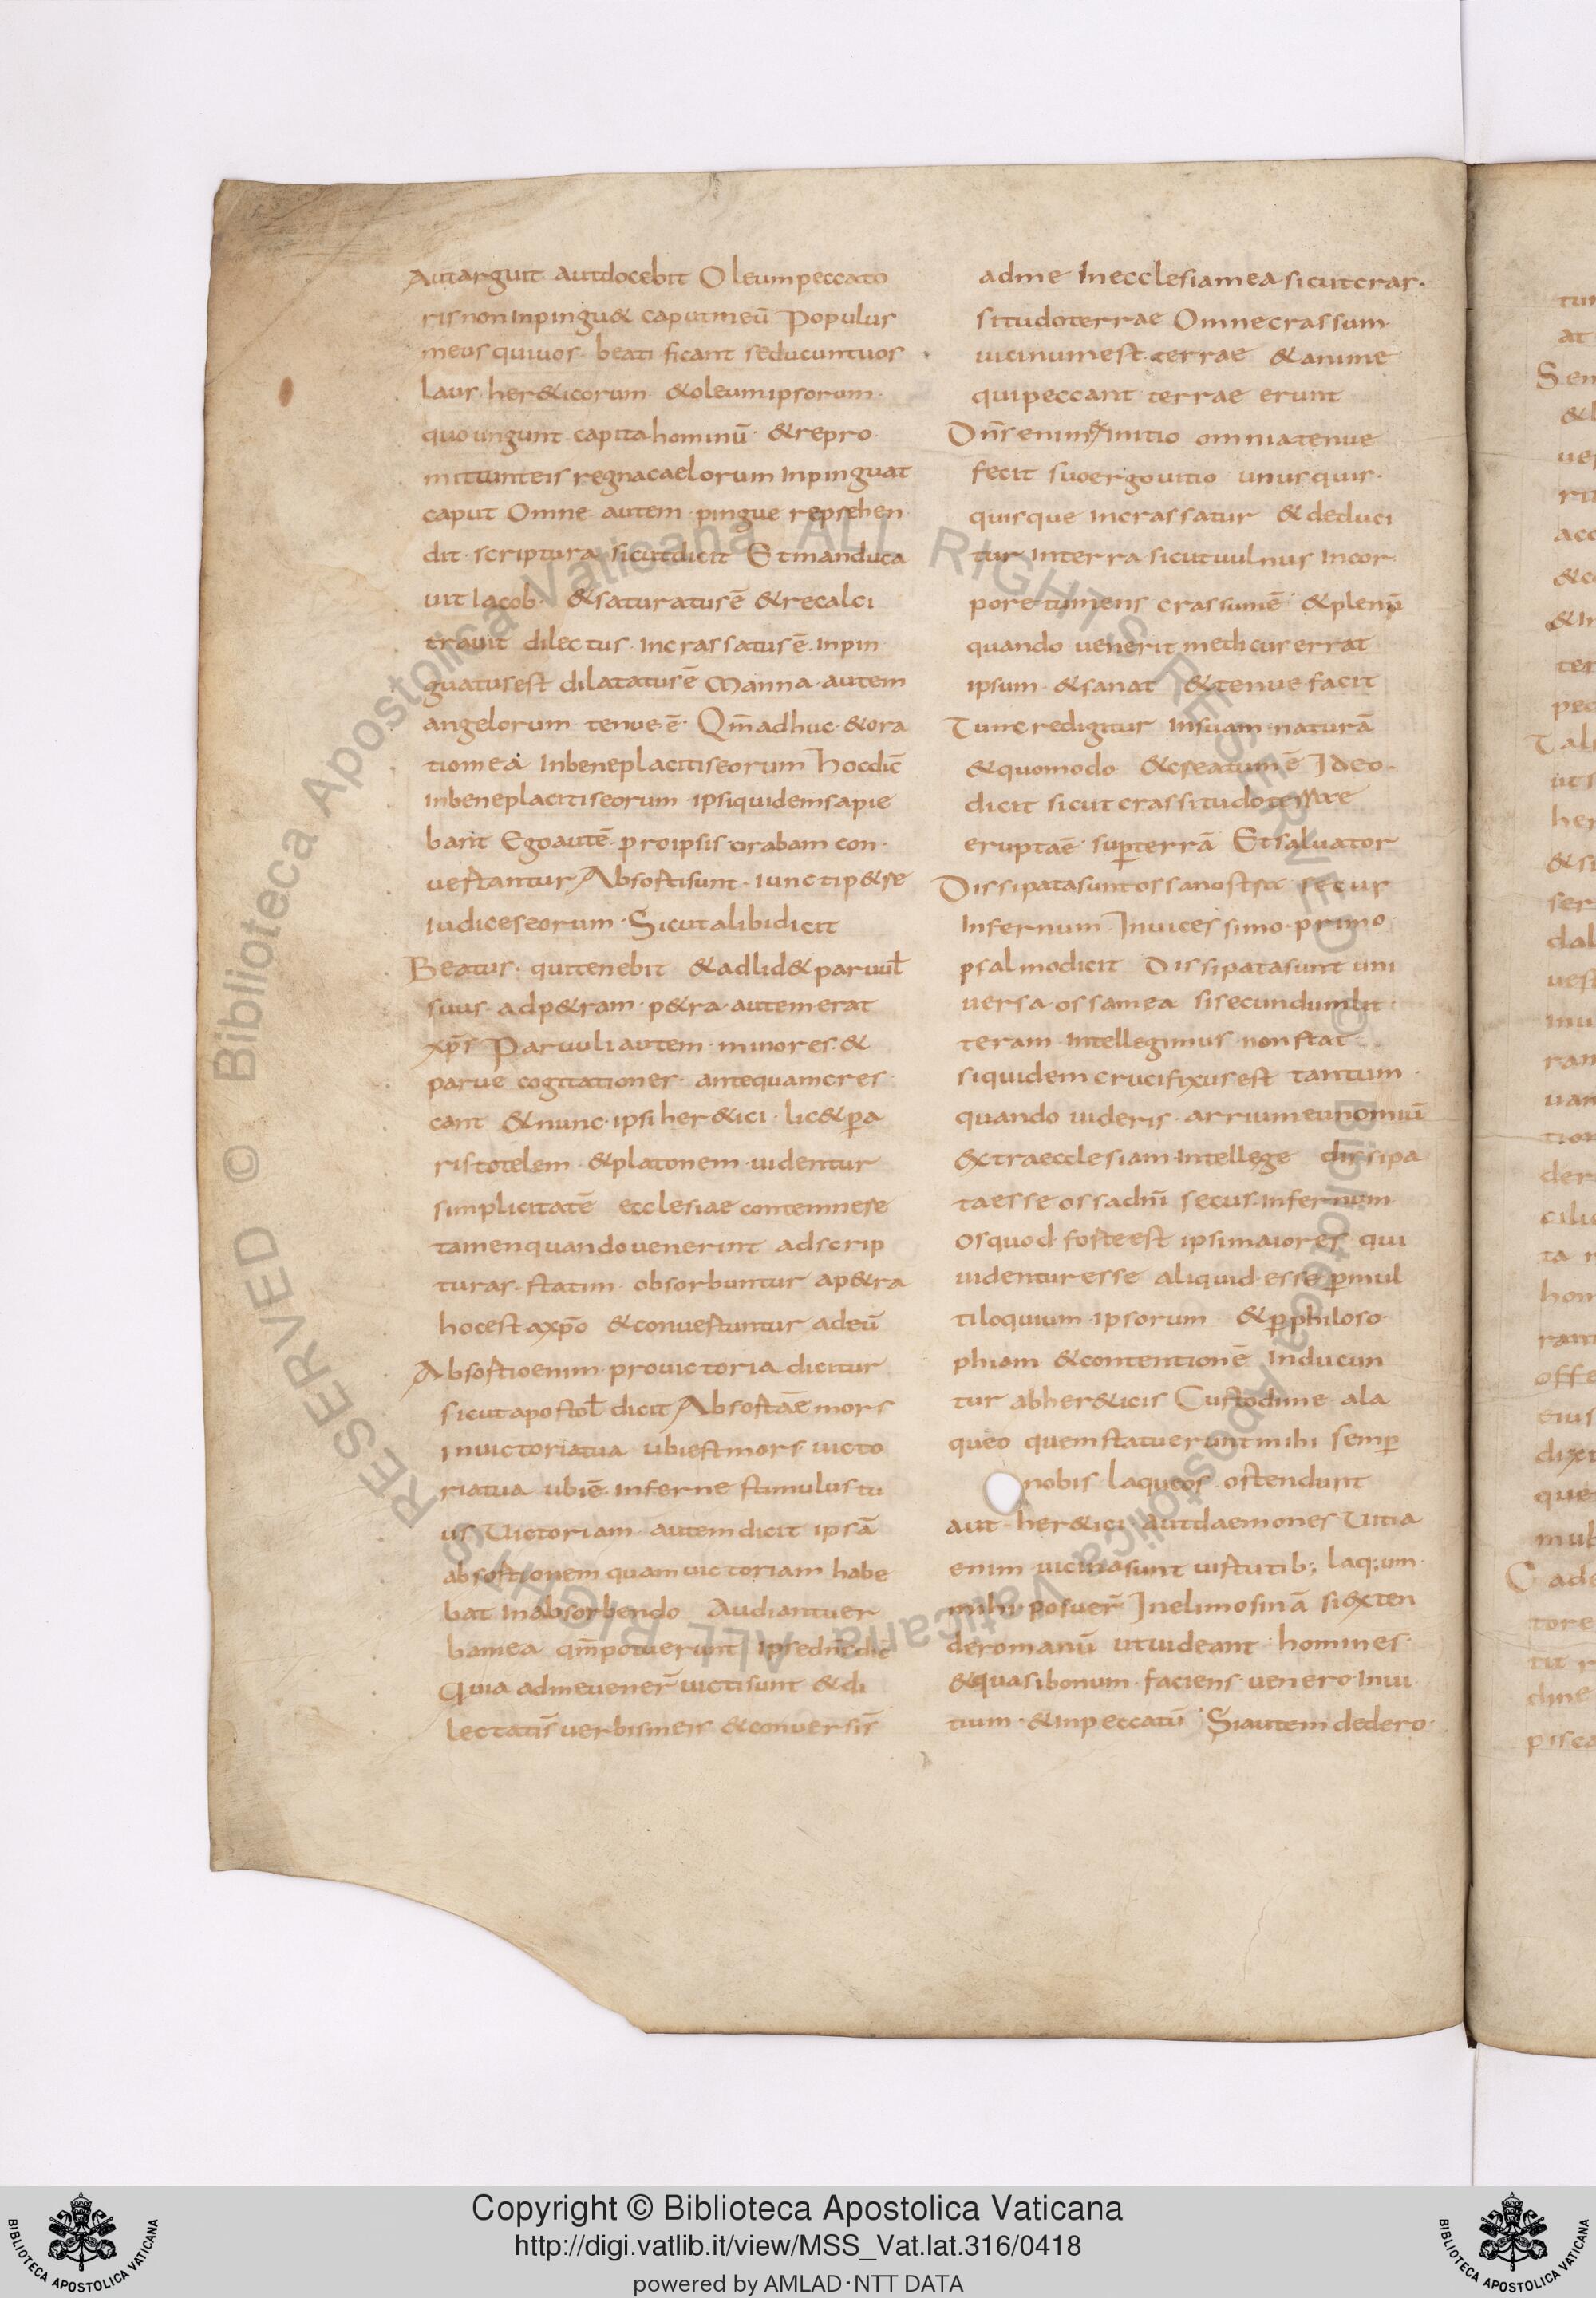 Autarguit autdocebit Oleumpeccato
risnoninpingu& caputmeū Populus
meus quiuos beati ficant seducuntuos
laus her&icorum &oleumipsorum
quo ungunt capita hominū &repro
mittunteis regnacaelorum inpinguat
caput Omne autem pingue reprehen
dit scriptura sicutdicit Et manduca
uit Iacob &saturatusē &recalci
trauit dilectus incrassatusē inpin
guatusest dilatatusē Manna autem
angelorum tenue ē Qm̄adhuc &ora
tiomea inbeneplacitiseorum hocdic̄
inbeneplacitiseorum ipsiquidemsapie
bant Egoautē proipsis orabam con
uertantur Absortisunt iuncti p&re
iudiceseorum Sicutalibidicit
Beatus quitenebit &adlid& paruul̄
suus adp&ram p&ra autemerat
xp̄s Paruuliautem minores &
parue cogitationes antequamcres
cant &nunc ipsi her&ici lic& p̱a
ristotelem &platonem uidentur
simplicitatē ecclesiae contemnere
tamenquandouenerint adscrip
turas statim obsorbuntur ap&ra
hocestaxp̄o &conuertuntur adeū
Absortioenim prouictoria dicitur
sicutapostol̄ dicit Absortaē mors
inuictoriatua ubiestmors uicto
riatua ubiē inferne stimulustu
us Uictoriam autemdicit ipsā
absortionem quam uictoriam habe
bat inabsorbendo Audiantuer
bamea qm̄potuerunt ipsedn̄s dic̄
Quia admeuener̄ uictisunt &di
lectatis̄ uerbismeis &conuersis̄
adme inecclesiamea sicutcras
situdoterrae Omnecrassum
uicinumest terrae &anime
quipeccant terrae erunt
Dn̄s enim ex initio omniatenue
fecit suoergouitio unusquis
quisque incrassatur &deduci
tur interra sicutuulnus incor
poretumens crassumē &plenū
quando uenerit medicuserrat
ipsum &sanat &tenue facit
Tunc redigitur insuam naturā
&quomodo &creatumē Ideo
dicit sicut crassitudoterrae
eruptaē sup̱terrā Etsaluator
Dissipatasuntossanostra secus
infernum Inuicessimo primo
psalmodicit Dissipatasunt uni
uersa ossamea sisecundumlit
teram intellegimus nonstat
siquidem crucifixusest tantum
quando uideris arriumeunomiū
extraecclesiam intellege dissipa
taesse ossadn̄i secus infernum
Osquod forteest ipsimaiores qui
uidenturesse aliquid esse p̱mul
tiloquium ipsorum &p̱philoso
phiam &contentionē inducun
tur abher&icis Custodime ala
queo quemstatueruntmihi semp̱
nobis laqueos ostendunt
aut her&ici autdaemones Uitia
enim uicinasunt uirtutib; laq;um
mihi posuer̄ Inelimosinā siexten
deromanū utuideant homines
&quasibonum faciens uenero inui
tium &inpeccatū Siautem dedero
Copyright © Biblioteca Apostolica Vaticana
http://digi.vatlib.it/view/MSS_Vat.lat.316/0418
powered by AMLAD·NTT DATA